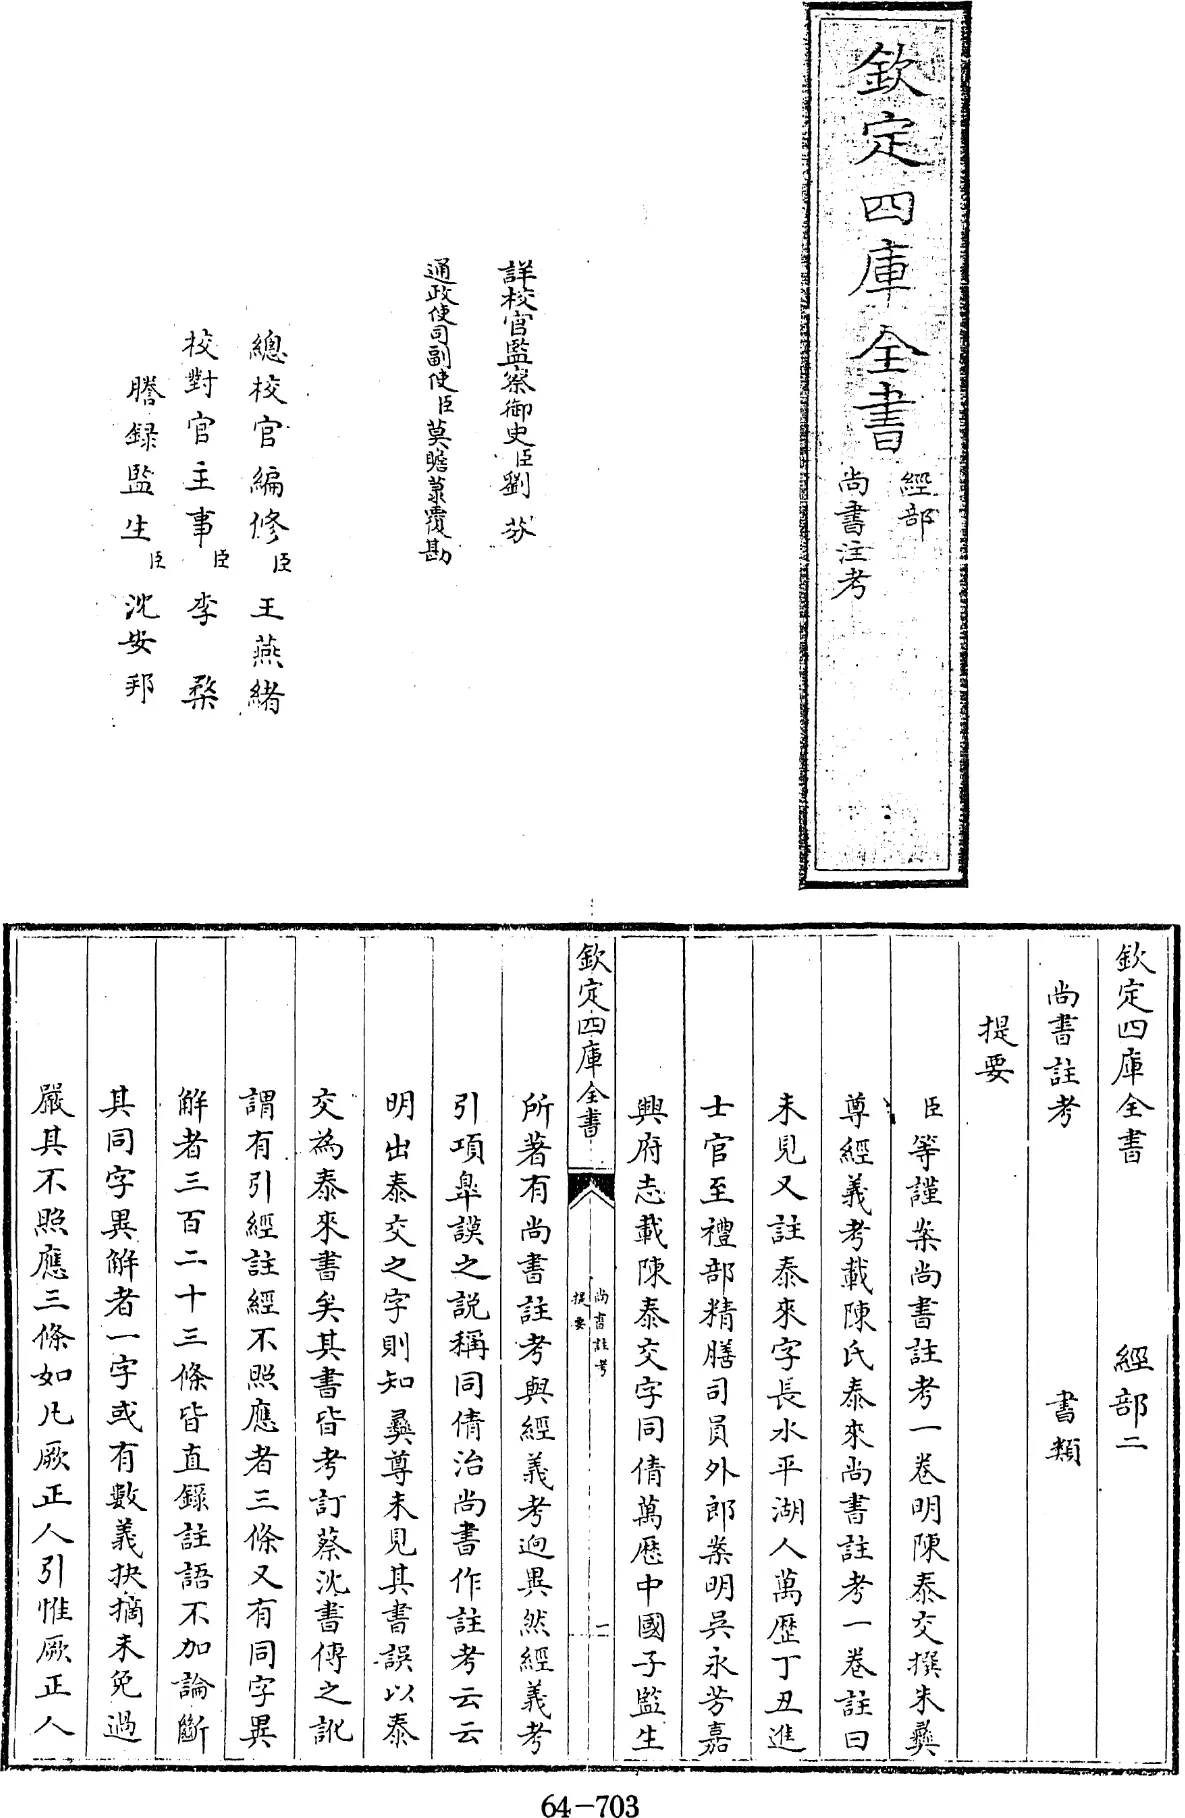 欽定四庫全書
經部
尚書注考
詳校官監察御史臣劉芬
通政使司副使臣莫瞻菉覆勘
總校官編修臣王燕緒
校對官主事臣李棨
謄錄監生臣沈安邦
欽定四庫全書 經部二
尚書註考 書類
提要
臣等謹案尚書註考一卷明陳泰交撰朱彝
尊經義考載陳氏泰來尚書註考一卷註曰
未見又註泰來字長水平湖人萬歷丁丑進
士官至禮部精膳司員外郎案明吳永芳嘉
興府志載陳泰交字同倩萬歷中國子監生
欽定四庫全書
尚書註考
提要
二
所著有尚書註考與經義考迥異然經義考
引項臯謨之説稱同倩治尚書作註考云云
明出泰交之字則知彝尊未見其書誤以泰
交為泰來書矣其書皆考訂蔡沈書傳之訛
謂有引經註經不照應者三條又有同字異
解者三百二十三條皆直錄註語不加論斷
其同字異解者一字或有數義抉摘未免過
嚴其不照應三條如凡厥正人引惟厥正人
64-703